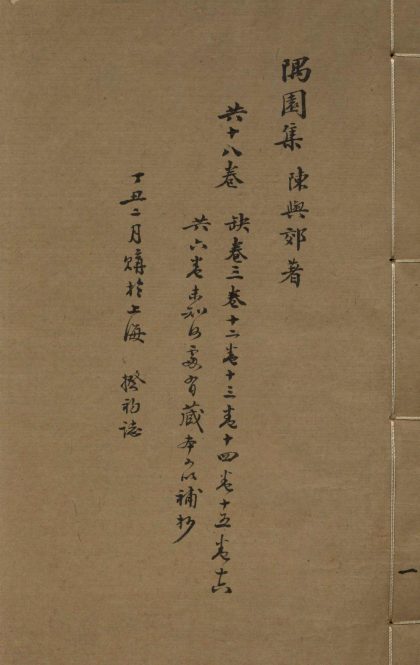 隅園集 陳與郊著
共十八卷 缺卷三卷十二卷十三卷十四卷十五卷十六
共六卷未知何處有藏本可以補抄
丁丑二月購於上海 揆初誌
一